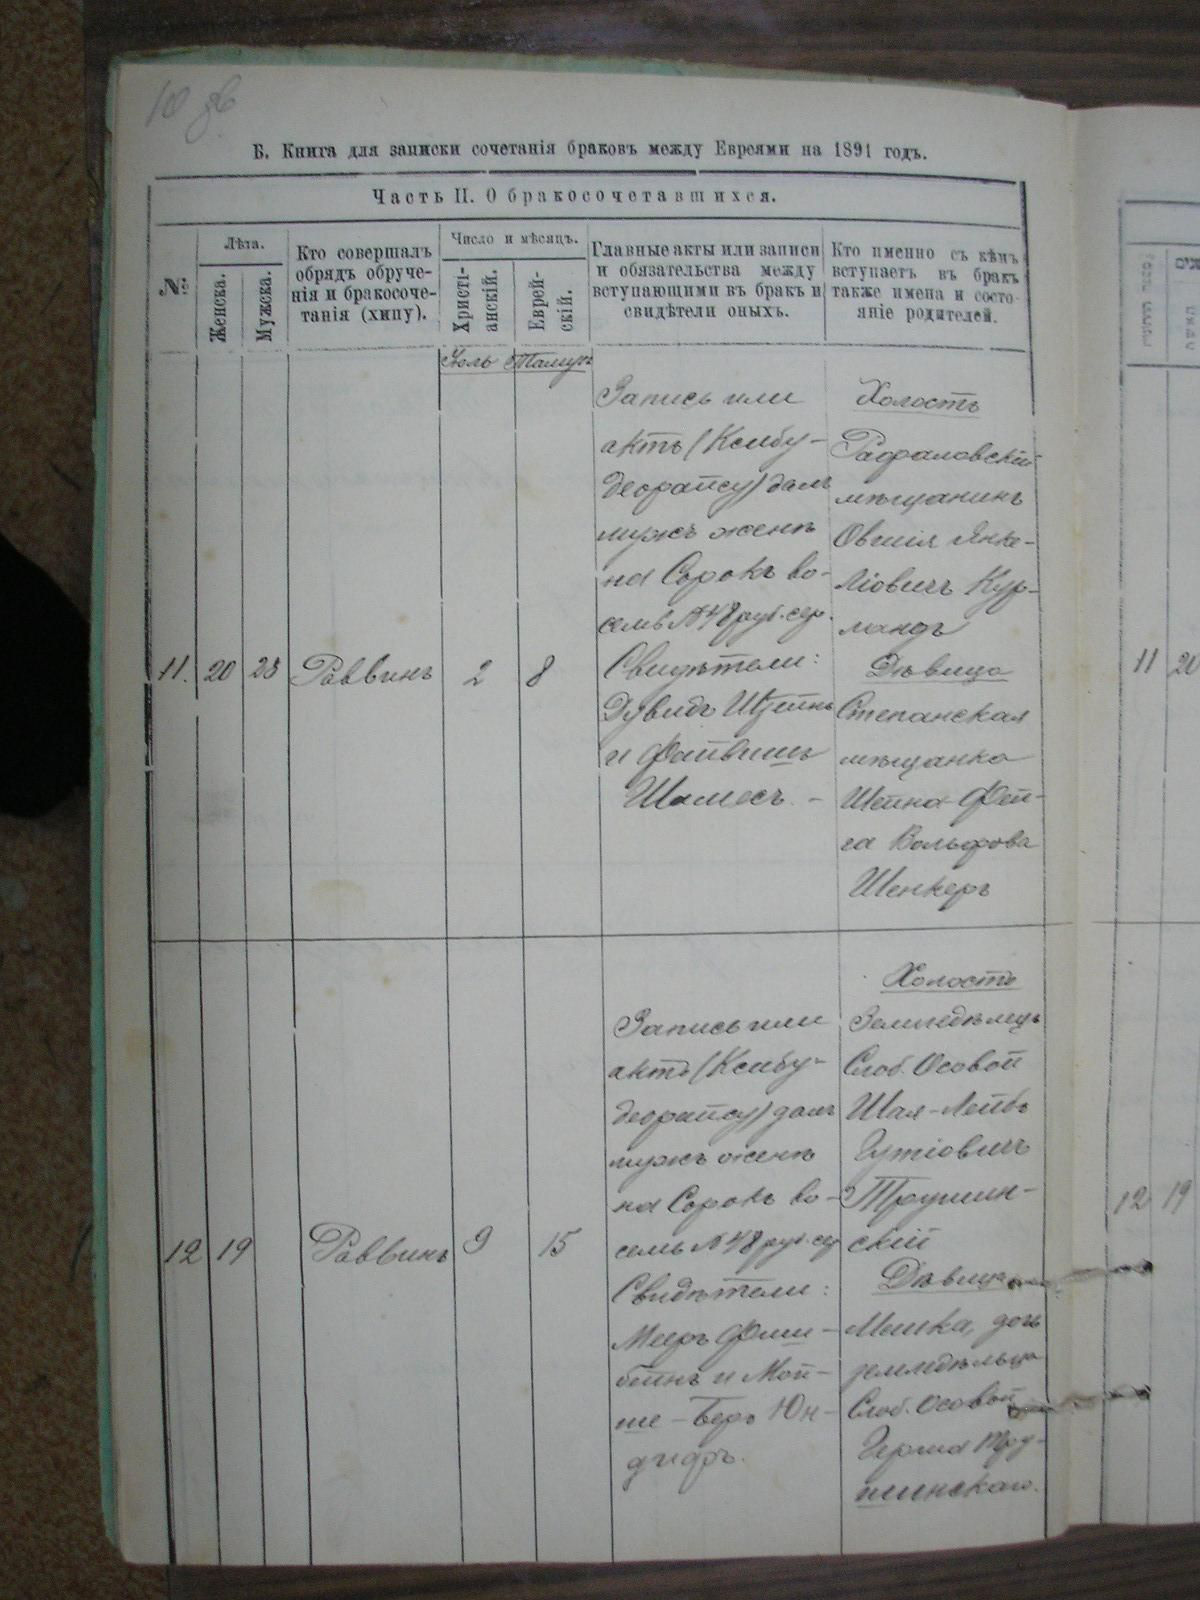 10 зв
Б. Книга для записки сочетанія браковъ между Евреями на 1891 годъ.
Часть II. О бракосочетавшихся.
№
Лѣта.
Женска.
Мужска.
Кто совершалъ
обрядъ обруче-
нія и бракосоче-
танія (хипу).
Число и мѣсяцъ.
Христі-
анскій.
Еврей-
скій.
Главные акты или записи
и обязательства между
вступающими въ бракъ и
свидѣтели оныхъ.
Кто именно съ кѣмъ
вступаетъ въ бракъ
также имена и состо-
яніе родителей.
Іюль Тамузъ
11. 20 28 Раввинъ 2 8
Запись или
актъ (Ксибу-
деорайсу) далъ
мужъ женѣ
на Сорокъ во-
семь №48 руб. сер.
Свидѣтели:
Дувидъ Штейнъ
и Файвишъ
Шамесъ. –
Холостъ
Рафаловскій
мѣщанинъ
Овшія Янке-
ліовичъ Кур-
ландъ
Дѣвица
Степанская
мѣщанка
Шейна-Фей-
га Вольфова
Шенкеръ
12 19 Раввинъ 9 15
Запись или
актъ (Ксибу-
деорайсу) далъ
мужъ женѣ
на Сорокъ во-
семь №48 руб. сер
Свидѣтели:
Мееръ Фиш-
бейнъ и Мой-
ше-Беръ Юн-
дгифъ.
Холостъ
Земледѣлецъ
Слоб. Осовой
Шая-Лейбъ
Гутіовичъ
Трушин-
скій
Дѣвица
Мешка, дочь
земледѣльца
Слоб. Осовой
Герша Тру-
шинскаго.
11 20
12 19